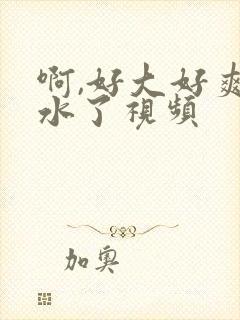 啊,好大好爽
水了视频
加奥